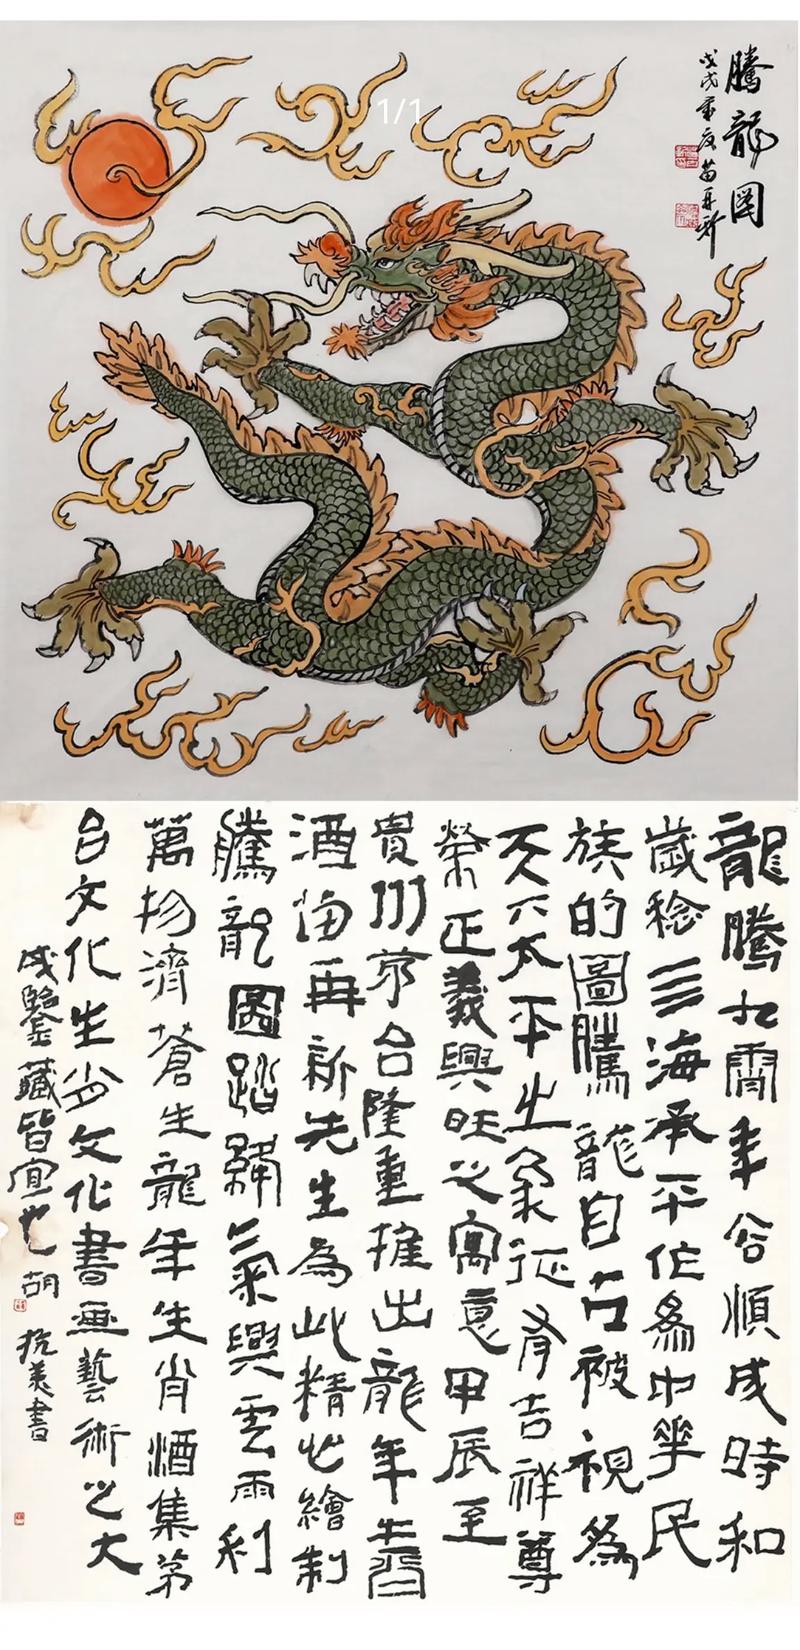 1/1
騰龍圖
戊戌夏苗再新
龍騰九霄年谷順成時和
歲稔亖海承平作爲中華民
族的圖騰龍自古被視爲
天下太平之象征有吉祥尊
榮正義興旺之寓意甲辰至
貴州茅台隆重推出龍年生肖
酒再新先生為此精心繪制
騰龍圖踏氣興雲雨利
萬物濟蒼生龍年生肖酒集茅
台文化生肖文化書畫藝術之大
成鑒藏皆宜也 胡抗美書